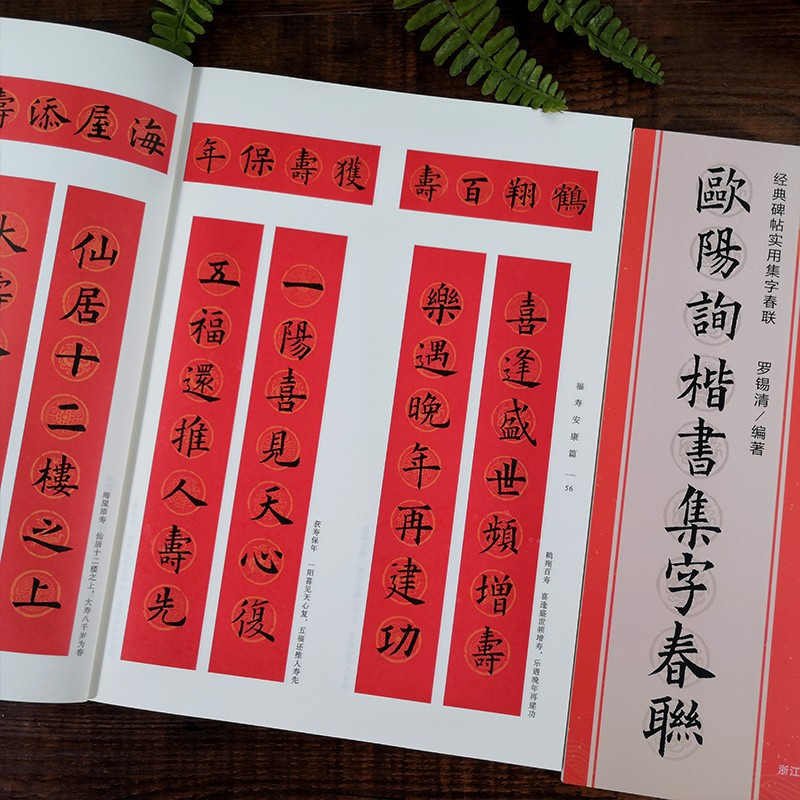 歐陽詢楷書集字春聯
经典碑帖实用集字春联
罗锡清／编著
浙江
鶴翔百壽
喜逢盛世頻增壽
樂遇晚年再建功
鹤翔百寿 喜逢盛世频增寿，乐遇晚年再建功
福寿安康篇
56
獲壽保年
一陽喜見天心復
五福還推人壽先
获寿保年 一阳喜见天心复，五福还推人寿先
海屋添壽
仙居十二樓之上
大壽
海屋添寿 仙居十二楼之上，大寿八千岁为春